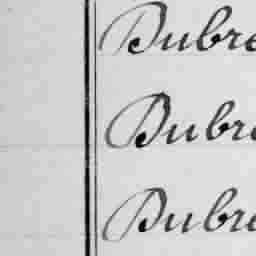 Dubre
Dubr
Dubre